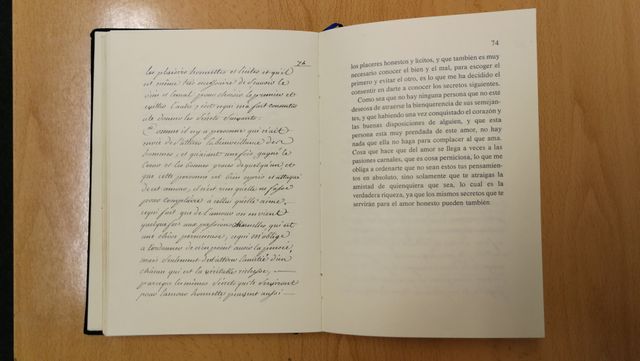 74
les plaisirs honnettes et licites et qu'il
est même très necessaire de Scavoir le
bien et le mal, pour choisir le premier et
eviller l'autre, c'est ce qui m'a fait consentir
a te donner les Secrets Suivants.
Comme il n'y a personne qui n'ait
soin de s'attirer la bienveillance des
hommes, et qu'aiant une fois gagné le
Coeur et les bonnes graces de quelqu'un, et
que cette personne est bien
de cet amour, il n'est rien qu'elle ne fasse
pour complaire a celles qu'elle aime.
ce qui fait que de l'amour on en vient
quelque fois aux passions charnelles qui est
une chose pernicieuse, ce qui m'oblige
a t'ordonner de n'en point avoir la pensée,
mais Seulement de t'attirer l'amitié d'un
chacun qui est la veritable richesse,
parceque les mêmes Secrets qui te Serviront
pour l'amour honnette peuvent aussi
74
los placeres honestos y lícitos, y que también es muy
necesario conocer el bien y el mal, para escoger el
primero y evitar el otro, es lo que me ha decidido el
consentir en darte a conocer los secretos siguientes.
Como sea que no hay ninguna persona que no esté
deseosa de atraerse la bienquerencia de sus semejan-
tes, y que habiendo una vez conquistado el corazón y
las buenas disposiciones de alguien, y que esta
persona está muy prendada de este amor, no hay
nada que ella no haga para complacer al que ama.
Cosa que hace del amor se llega a veces a las
pasiones carnales, que es cosa perniciosa, lo que me
obliga a ordenarte que no sean estos tus pensamien-
tos en absoluto, sino solamente que te atraigas la
amistad de quienquiera que sea, lo cual es la
verdadera riqueza, ya que los mismos secretos que te
servirán para el amor honesto pueden también